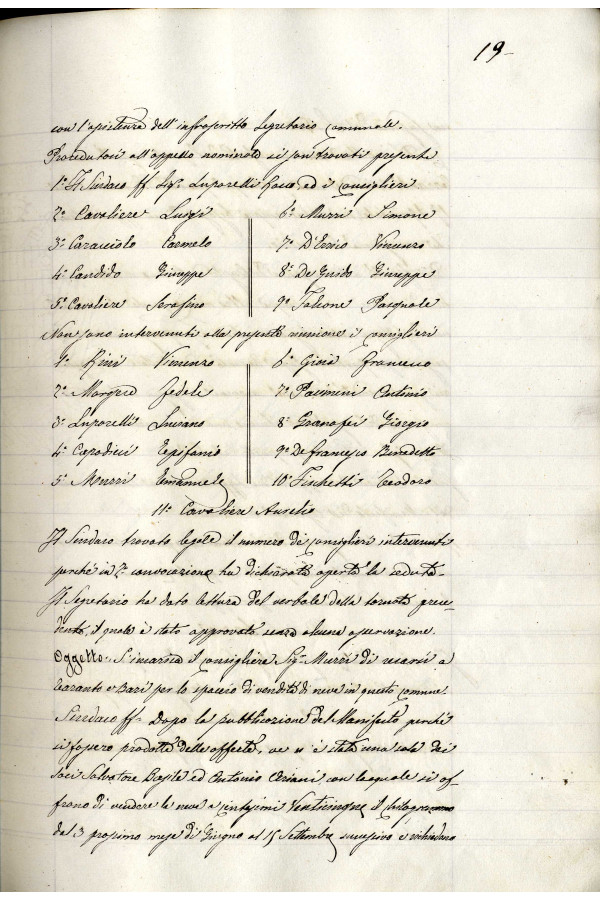 19-
con l'assistenza dell'infrascritto Segretario comunale.
Procedutosi all'appello nominale si son trovati presenti
1° Il Sindaco ff Sig. Luparelli Rocco ed i Consiglieri
2° Cavaliere Luigi 6° Murri Simone
3° Caracciolo Carmelo 7° D'Errico Vincenzo
4° Candido Giuseppe 8° De Guido Giuseppe
5° Cavaliere Serafino 9° Falcone Pasquale
Non sono intervenuti alla presente riunione i consiglieri
1° Rini Vincenzo 6° Gioia Francesco
2° Fedele 7° Pacimini Antonio
3° Luparelli Luciano 8° Granafei Giorgio
4° Capodieci Epifanio 9° De francesco Benedetto
5° Murri Emanuele 10° Fischetti Teodoro
11° Cavaliere
Il Sindaco trovato legale il numero dei consiglieri intervenuti
perché in 2a convocazione, ha dichiarata aperta la seduta.
Il Segretario ha dato lettura del verbale della tornata prece-
dente, il quale è stato approvato senza alcuna osservazione.
Oggetto: S'incarica il consigliere Sig. Murri di recarsi a
Taranto e Bari per lo spaccio di vendita di neve in questo comune
Sindaco ff. Dopo la pubblicazione del Manifesto perché
si fossero prodotte delle offerte, ve n'è stata una sola dei
soci Salvatore ed Antonio con la quale si of-
frono di vendere la neve a centesimi Venticinque il
dal 3 prossimo mese di Giugno al 15 Settembre successivo e